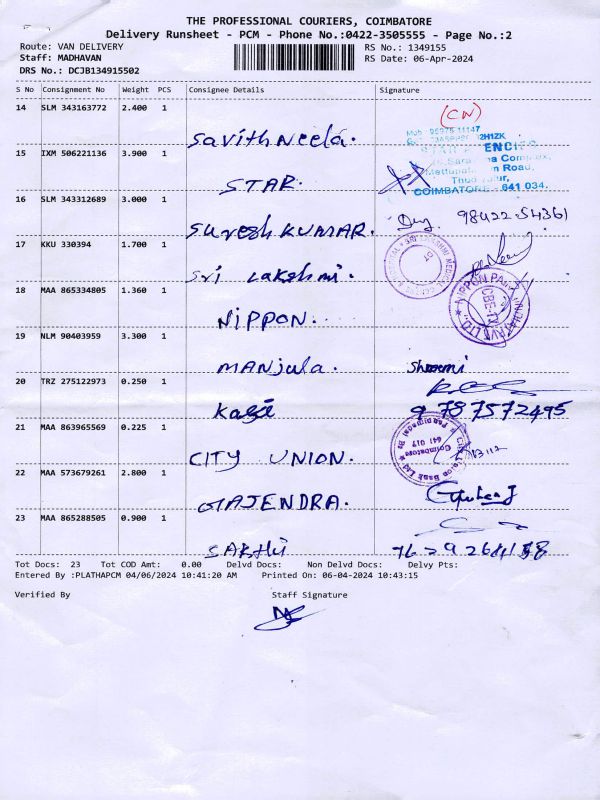 THE PROFESSIONAL COURIERS, COIMBATORE
Delivery Runsheet - PCM - Phone No.:0422-3505555 - Page No.:2
Route: VAN DELIVERY RS No.: 1349155
Staff: MADHAVAN RS Date: 06-Apr-2024
DRS No.: DCJB134915502
S No Consignment No Weight PCS Consignee Details Signature
14 SLM 343163772 2.400 1
(CN)
Savithneela.
15 IXM 506221136 3.900 1
STAR.
COIMBATORE - 641 034.
16 SLM 343312689 3.000 1
Suresh KUMAR. 98422 54361
17 KKU 330394 1.700 1
Sri Lakshmi.
18 MAA 865334805 1.360 1
NIPPON.
19 NLM 90403959 3.300 1
Manjula.
20 TRZ 275122973 0.250 1
9787572495
21 MAA 863965569 0.225 1
CITY UNION.
22 MAA 573679261 2.800 1
GAJENDRA.
23 MAA 865288505 0.900 1
SAKTHI
Tot Docs: 23 Tot COD Amt: 0.00 Delvd Docs: Non Delvd Docs: Delvy Pts:
Entered By :PLATHAPCM 04/06/2024 10:41:20 AM Printed On: 06-04-2024 10:43:15
Verified By Staff Signature